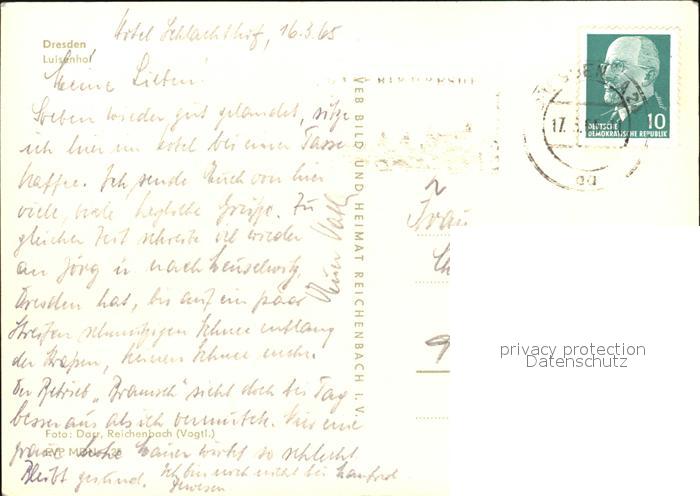 Hotel Schlachthof, 16.3.65
Dresden
Luisenhof
Meine Lieben!
Soeben wieder gut gelandet, sitze
ich hier im Hotel bei einer Tasse
Kaffee. Ich sende Euch von hier
viele, viele herzliche Grüße. Zu
gleicher Zeit schreibe ich wieder
an Jörg u. nach
Dresden hat, bis auf ein paar
Streifen schmutzigen Schnee entlang
der Straßen, keinen Schnee mehr.
Der Betrieb „Bramsch" sieht doch bei Tag
besser aus als ich vermutete. Nur eine
Foto: Darr, Reichenbach (Vogtl.)
graue hohe Mauer wirkt so schlecht
Bleibt gesund. Ich bin noch nicht bei Manfred
gewesen
Euer
VEB BILD UND HEIMAT REICHENBACH i. V.
DEUTSCHE
DEMOKRATISCHE REPUBLIK
10
17.
Frau
privacy protection
Datenschutz